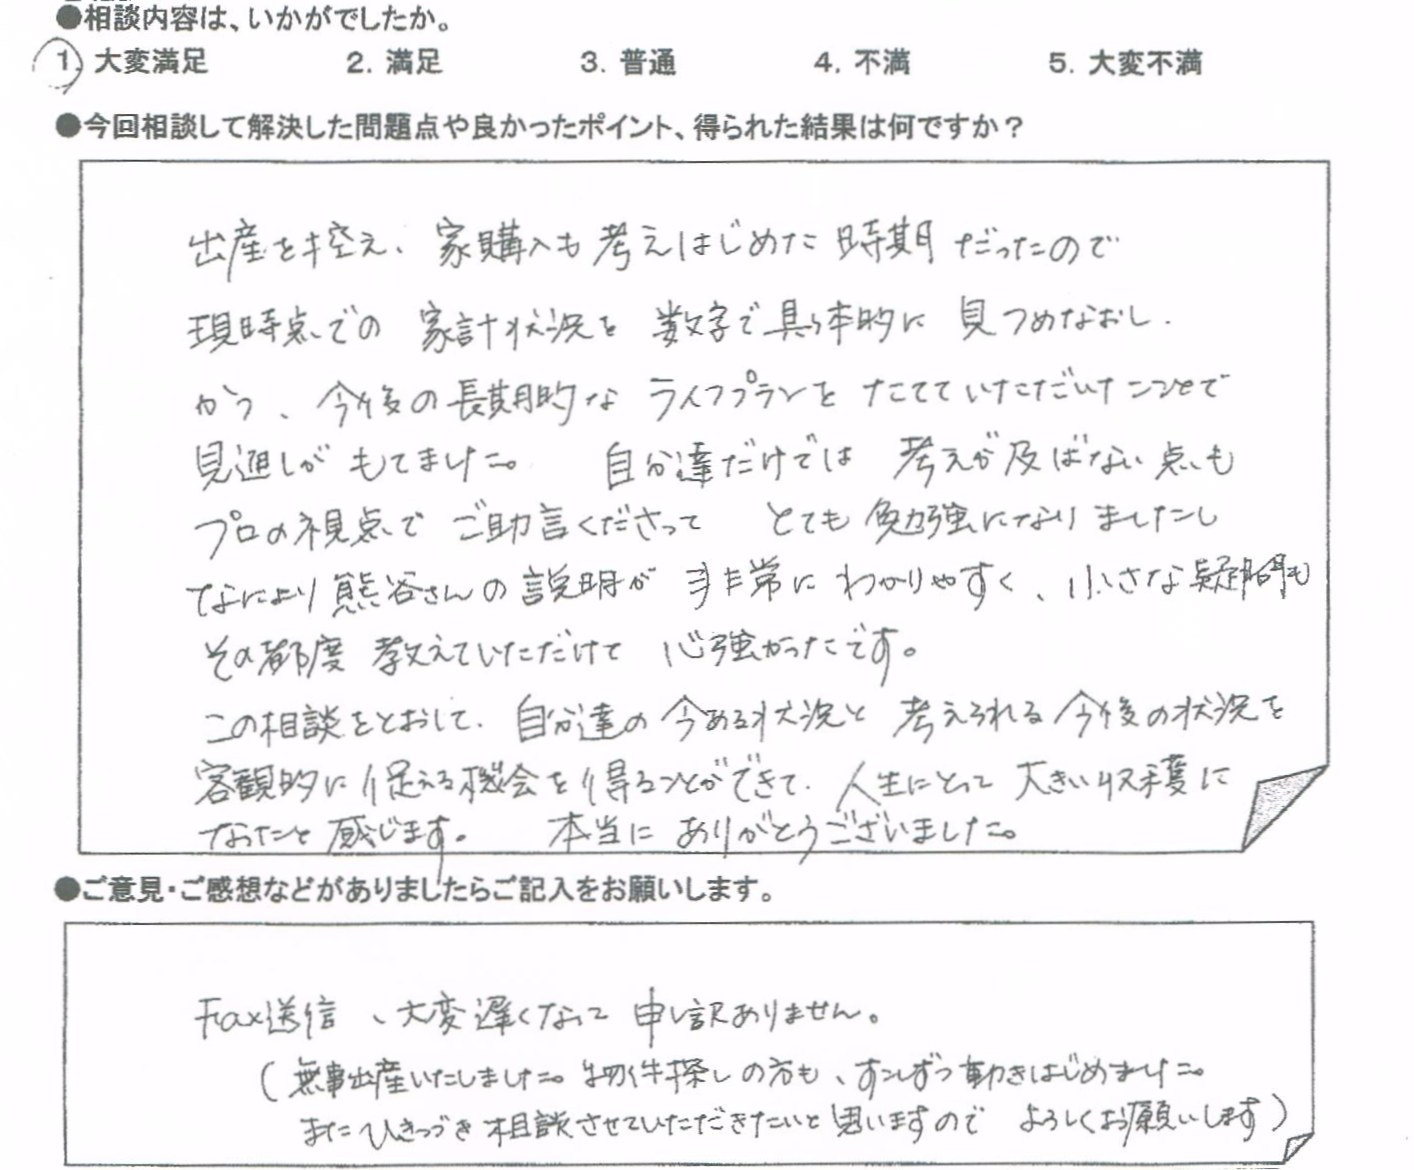 ●相談内容は、いかがでしたか。
1. 大変満足 2. 満足 3. 普通 4. 不満 5. 大変不満
●今回相談して解決した問題点や良かったポイント、得られた結果は何ですか？
出産を控え、家購入も考えはじめた時期だったので
現時点での家計状況を数字で具体的に見つめなおし、
かつ、今後の長期的なライフプランをたてていただいたことで
見通しがもてました。 自分達だけでは考えが及ばない点も
プロの視点でご助言くださって とても勉強になりましたし
なにより熊谷さんの説明が非常にわかりやすく、小さな疑問も
その都度教えていただけて心強かったです。
この相談をとおして、自分達の今ある状況と考えられる今後の状況を
客観的に捉える機会を得ることができて、人生にとって大きい収穫に
なったと感じます。 本当にありがとうございました。
●ご意見・ご感想などがありましたらご記入をお願いします。
Fax送信、大変遅くなって申し訳ありません。
(無事出産いたしました。物件探しの方も、すこしずつ動きはじめました。
またひきつづき相談させていただきたいと思いますのでよろしくお願いします)